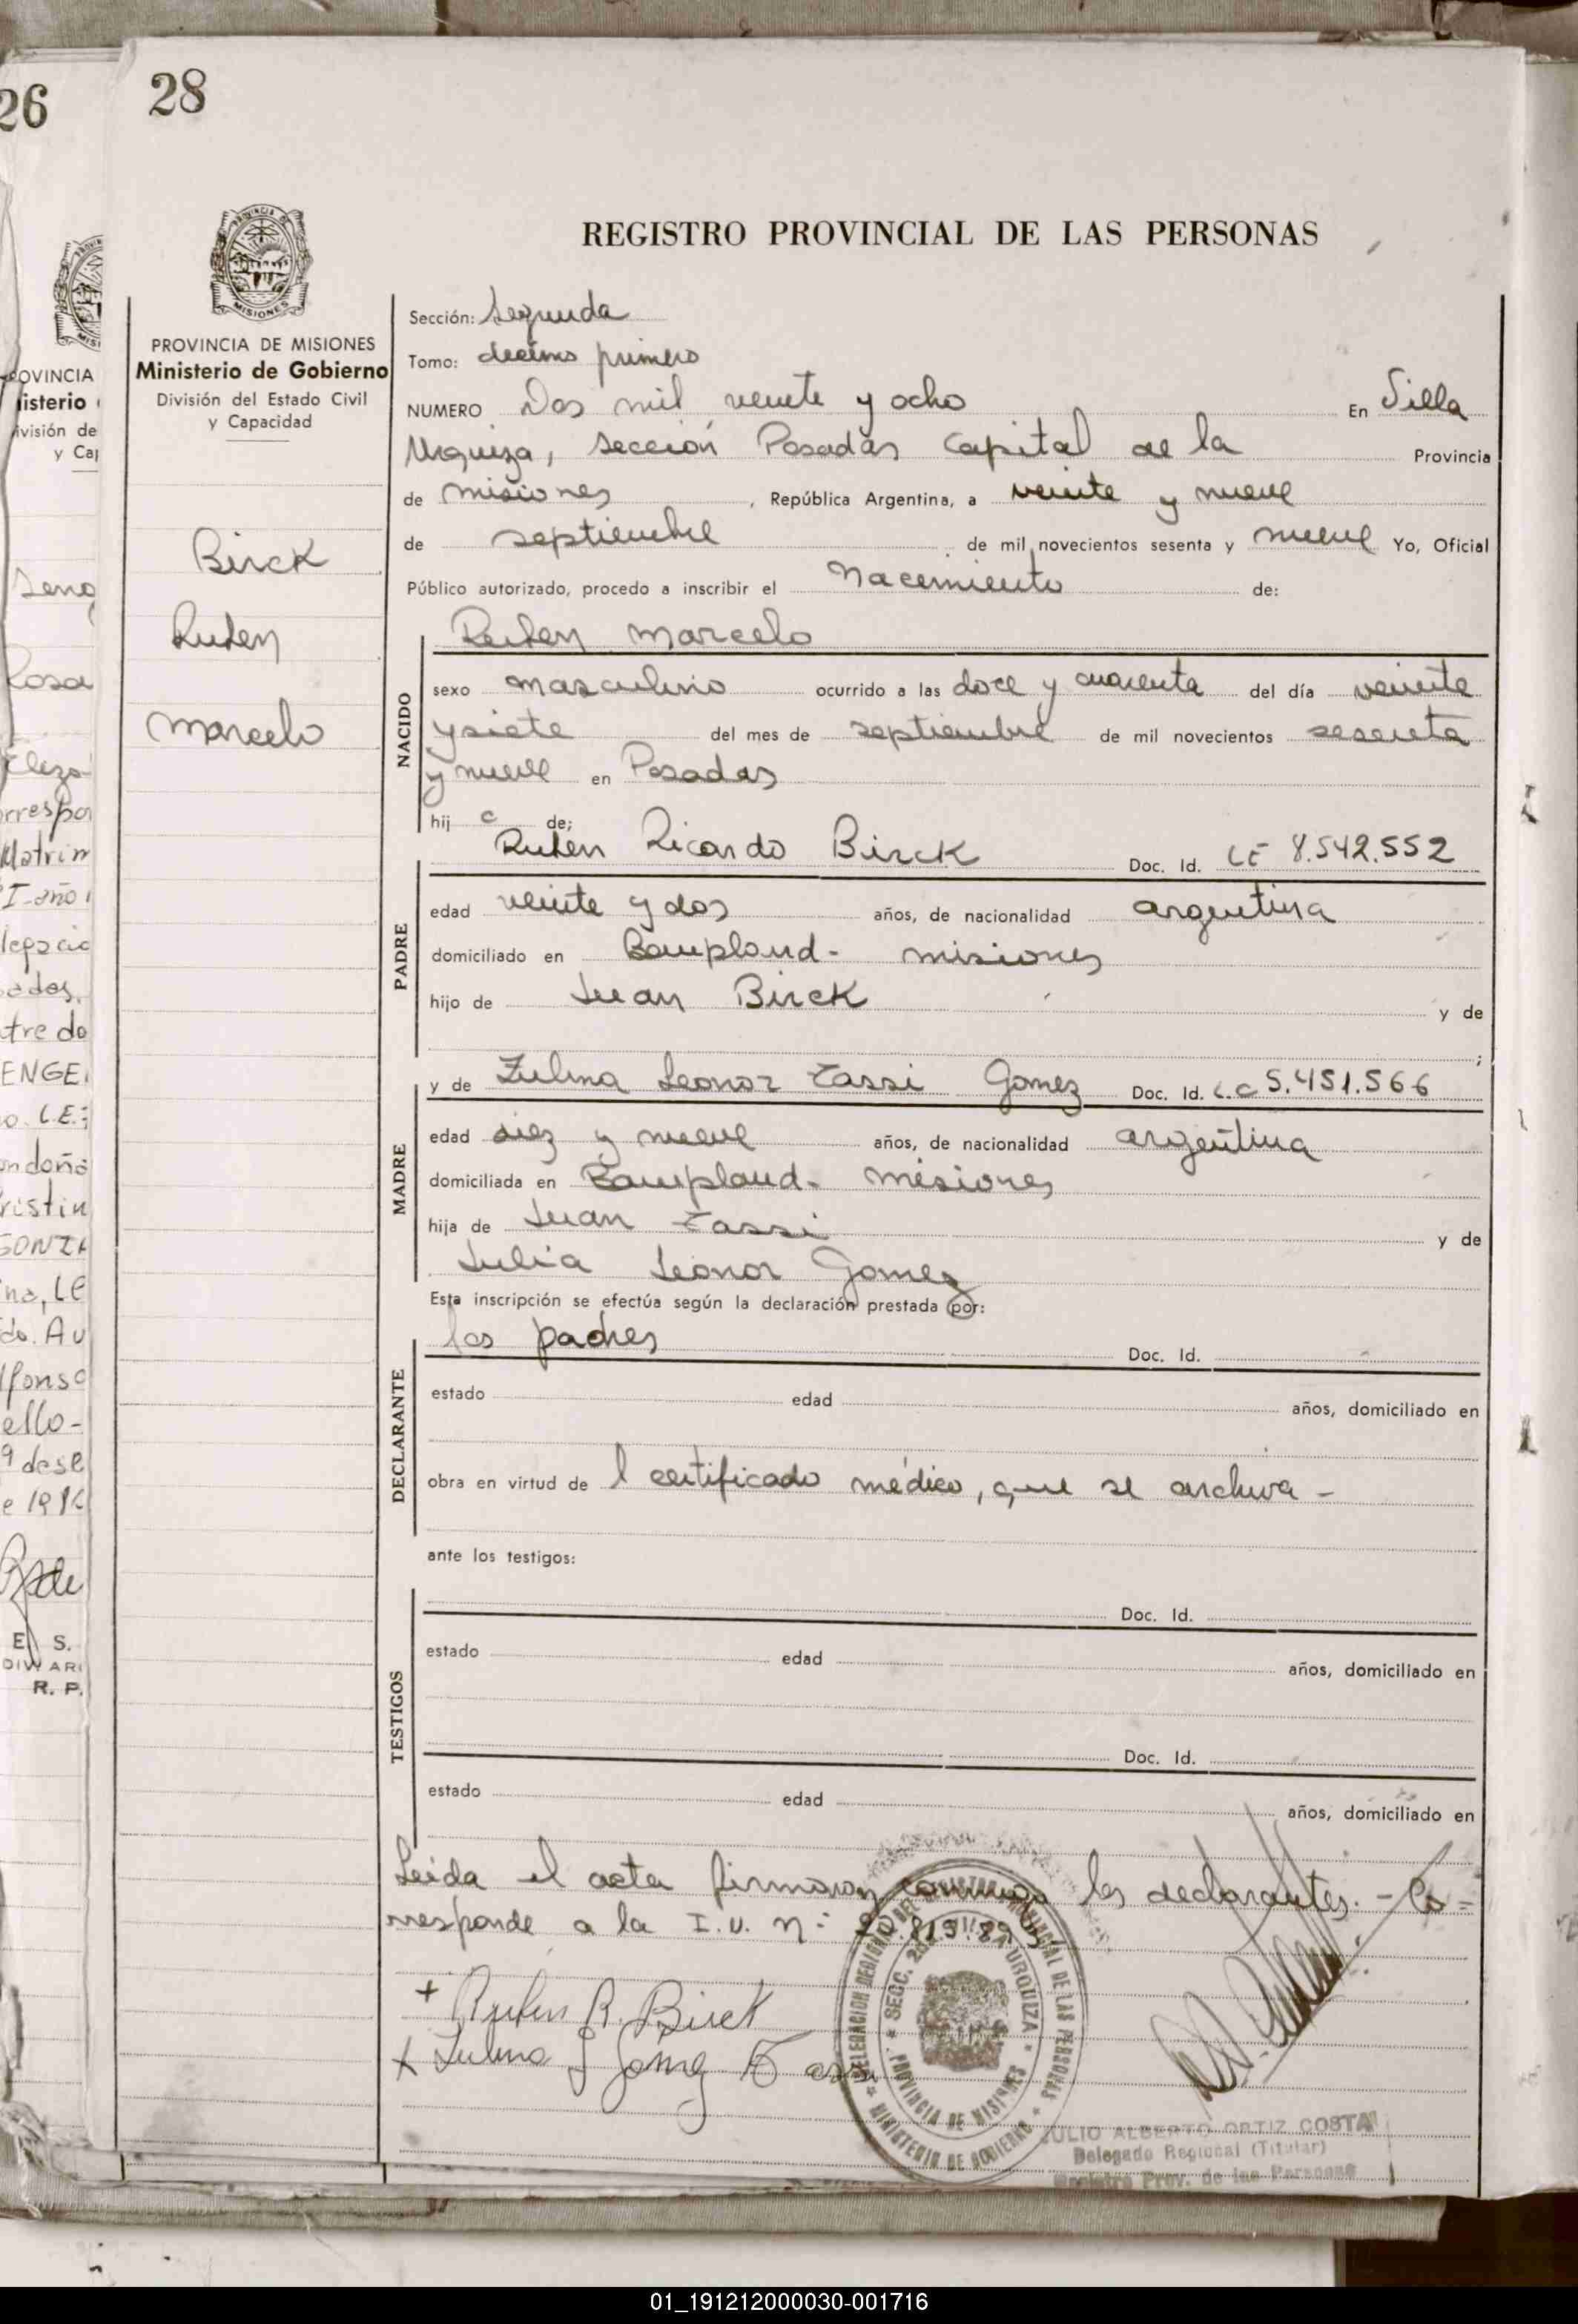 26
28
PROVINCIA DE MISIONES
Ministerio de Gobierno
División del Estado Civil
y Capacidad
Birck
Ruben
Marcelo
REGISTRO PROVINCIAL DE LAS PERSONAS
Sección: Segunda
Tomo: decimo primero
NUMERO Dos mil veinte y ocho En Villa
Urquiza, Sección Posadas Capital de la Provincia
de misiones, República Argentina, a veinte y nueve
de septiembre de mil novecientos sesenta y nueve Yo, Oficial
Público autorizado, procedo a inscribir el Nacimiento de:
Ruben Marcelo
NACIDO
sexo masculino ocurrido a las doce y cuarenta del día veinte
y siete del mes de septiembre de mil novecientos sesenta
y nueve en Posadas
hij o de;
Ruben Ricardo Birck Doc. Id. LE 8.542.552
PADRE
edad veinte y dos años, de nacionalidad argentina
domiciliado en Bompland - misiones
hijo de Juan Birck y de
;
y de Zulma Leonor Tassi Gomez Doc. Id. L.C 5.451.566
MADRE
edad diez y nueve años, de nacionalidad argentina
domiciliada en Bompland - misiones
hija de Juan Tassi y de
Julia Leonor Gomez
Esta inscripción se efectúa según la declaración prestada por:
los padres Doc. Id.
DECLARANTE
estado edad años, domiciliado en
obra en virtud de l certificado médico, que se archiva -
ante los testigos:
Doc. Id.
TESTIGOS
estado edad años, domiciliado en
Doc. Id.
estado edad años, domiciliado en
Leida el acta firmaron conmigo los declarantes. - Co=
rresponde a la I.U. N:
+ Ruben R. Birck
+ Zulma L Gomez Tassi
DELEGACION REGIONAL DEL REGISTRO PROVINCIAL DE LAS PERSONAS
MINISTERIO DE GOBIERNO
SECC. 2da. VILLA URQUIZA
PROVINCIA DE MISIONES
JULIO ALBERTO ORTIZ COSTA
Delegado Regional (Titular)
Registro Prov. de las Personas
01_191212000030-001716